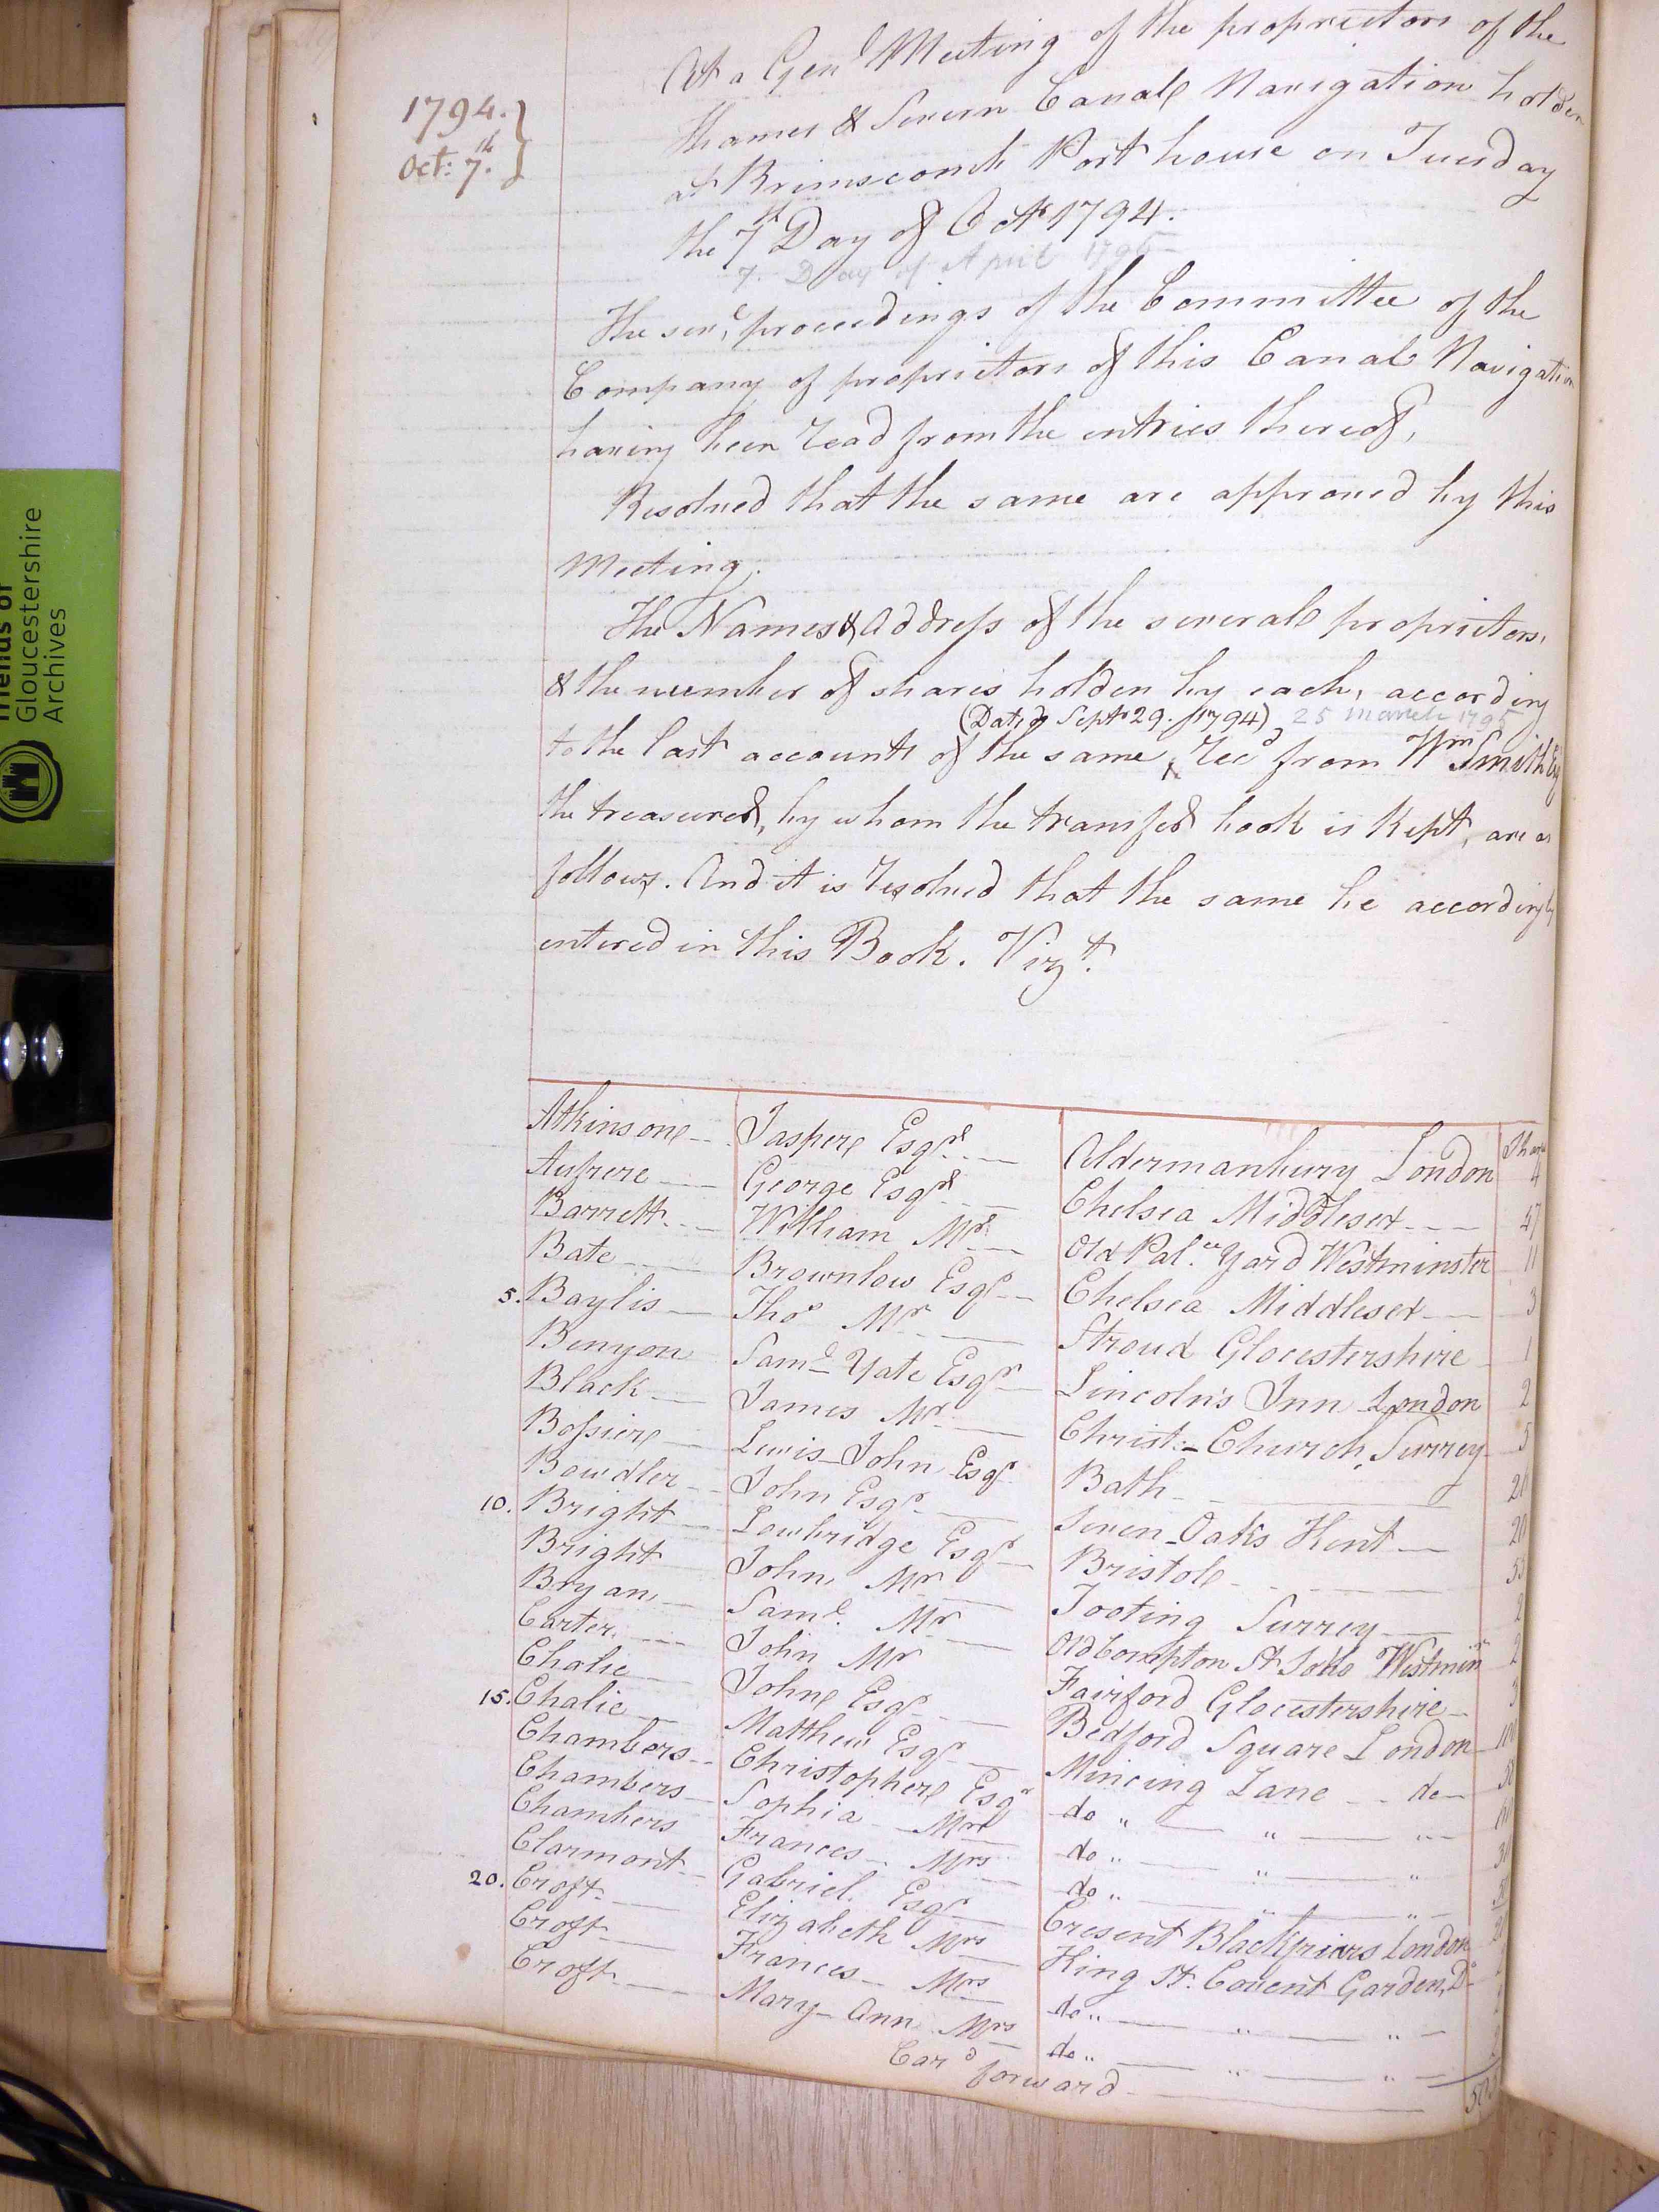 1794.
Oct: 7.th
At a Gen.l Meeting of the proprietors of the
Thames & Severn Canal Navigation holden
at Brimscomb Port house on Tuesday
the 7th Day of Octr 1794.
7. Day of April 1795
The sev.l proceedings of the Committee of the
Company of proprietors of this Canal Navigation
having been read from the entries thereof,
Resolved that the same are approved by this
Meeting.
The Names & Address of the several proprietors,
& the number of shares holden by each, according
(Dated Septr 29. 1794) 25 March 1795
to the last accounts of the same, recd from Wm Smith Esq
the treasurer, by whom the transfer book is kept, are as
follows. And it is resolved that the same be accordingly
entered in this Book. Vizt.
Shares
Atkinson Jasper Esqr. Aldermanbury London 4
Aufrere George Esqr Chelsea Middlesex 47
Barrett William Mr. Old Pal.ce Yard Westminster 11
Bate Brownlow Esqr. Chelsea Middlesex 3
5. Baylis Thos Mr Stroud Glocestershire 1
Benyon Saml Yate Esqr Lincoln's Inn London 2
Black James Mr. Christ: Church, Surrey 5
Bossiere Lewis John Esqr. Bath 20
Bowdler John Esqr. Seven Oaks Kent 20
10. Bright Lowbridge Esqr Bristol 53
Bright John Mr Tooting Surrey 2
Bryan Saml. Mr Old Compton St Soho Westminr 2
Carter John Mr Fairford Glocestershire 3
Chalie John Esqr. Bedford Square London 100
15. Chalie Matthew Esqr. Mincing Lane do
Chambers Christopher Esqr do " " "
Chambers Sophia Mrs do " " "
Chambers Frances Mrs do " " "
Clarmont Gabriel Esqr Cresent Blackfriars London
20. Croft Elizabeth Mrs King St. Covent Garden, Do
Croft Frances Mrs do " " "
Croft Mary Ann Mrs do " " " 2
Card forward
Friends of
Gloucestershire
Archives